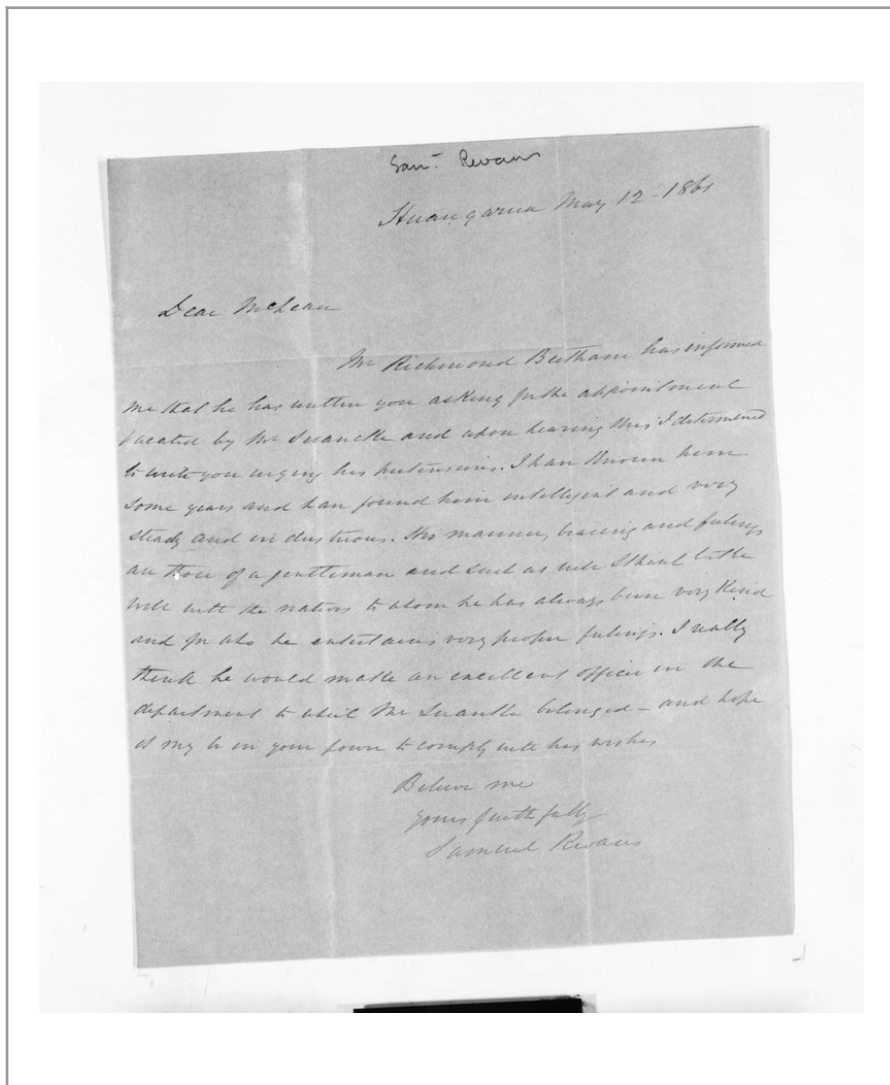 Saml. Revans
Huangarua May 12 - 1861
Dear McLean
Mr Richmond Beetham has informed
me that he has written you asking for the appointment
vacated by Mr and upon hearing this I determined
to write you urging his pretensions. I have known him
some years and have found him intelligent and very
steady and industrious. His manner, bearing and feelings
are those of a gentleman and such as will I think take
well with the natives to whom he has always been very kind
and for who he entertains very proper feelings. I really
think he would make an excellent officer in the
department to which Mr belonged - and hope
it may be in your power to comply with his wishes
Believe me
Yours faithfully
Samuel Revans